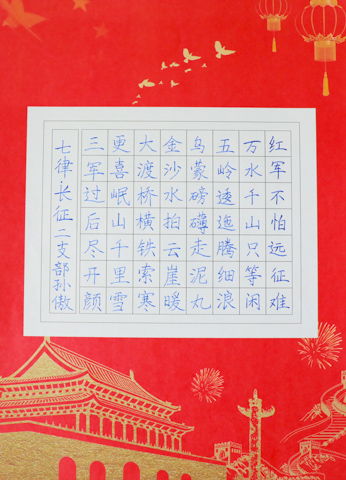 红军不怕远征难
万水千山只等闲
五岭逶迤腾细浪
乌蒙磅礴走泥丸
金沙水拍云崖暖
大渡桥横铁索寒
更喜岷山千里雪
三军过后尽开颜
七律长征二支部孙傲